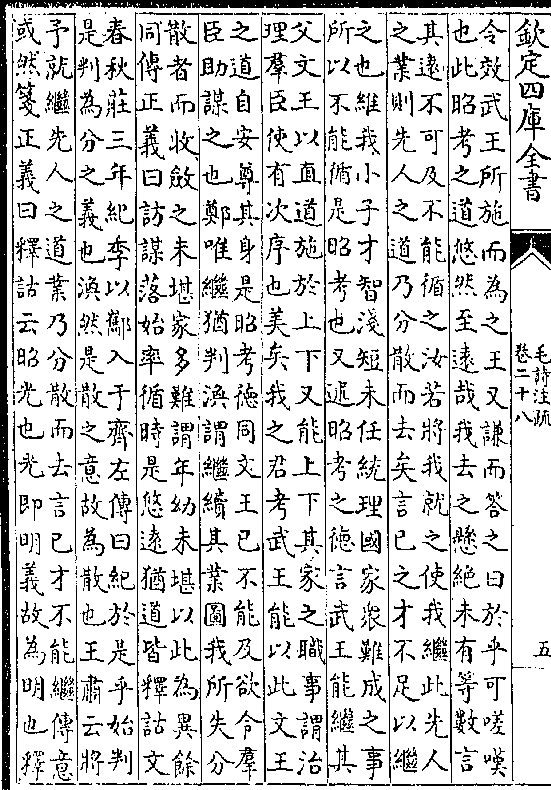 欽定四庫全書
毛詩注疏
卷二十八
五
令效武王所施而為之王又謙而答之曰於乎可嗟嘆
也此昭考之道悠然至遠哉我去之懸絕未有等數言
其遠不可及不能循之汝若將我就之使我繼此先人
之業則先人之道乃分散而去矣言已之才不足以繼
之也維我小子才智淺短未任統理國家衆難成之事
所以不能循是昭考也又述昭考之德言武王能繼其
父文王以直道施於上下又能上下其家之職事謂治
理羣臣使有次序也美矣我之君考武王能以此文王
之道自安尊其身是昭考德同文王已不能及欲令羣
臣助謀之也鄭唯繼猶判渙謂繼續其業圖我所失分
散者而收斂之未堪家多難謂年幼未堪以此為異餘
同傳正義曰訪謀落始率循時是悠遠猶道皆釋詁文
春秋莊三年紀季以酅入于齊左傳曰紀於是乎始判
是判為分之義也渙然是散之意故為散也王肅云將
予就繼先人之道業乃分散而去言已才不能繼傳意
或然箋正義曰釋詁云昭光也光即明義故為明也釋